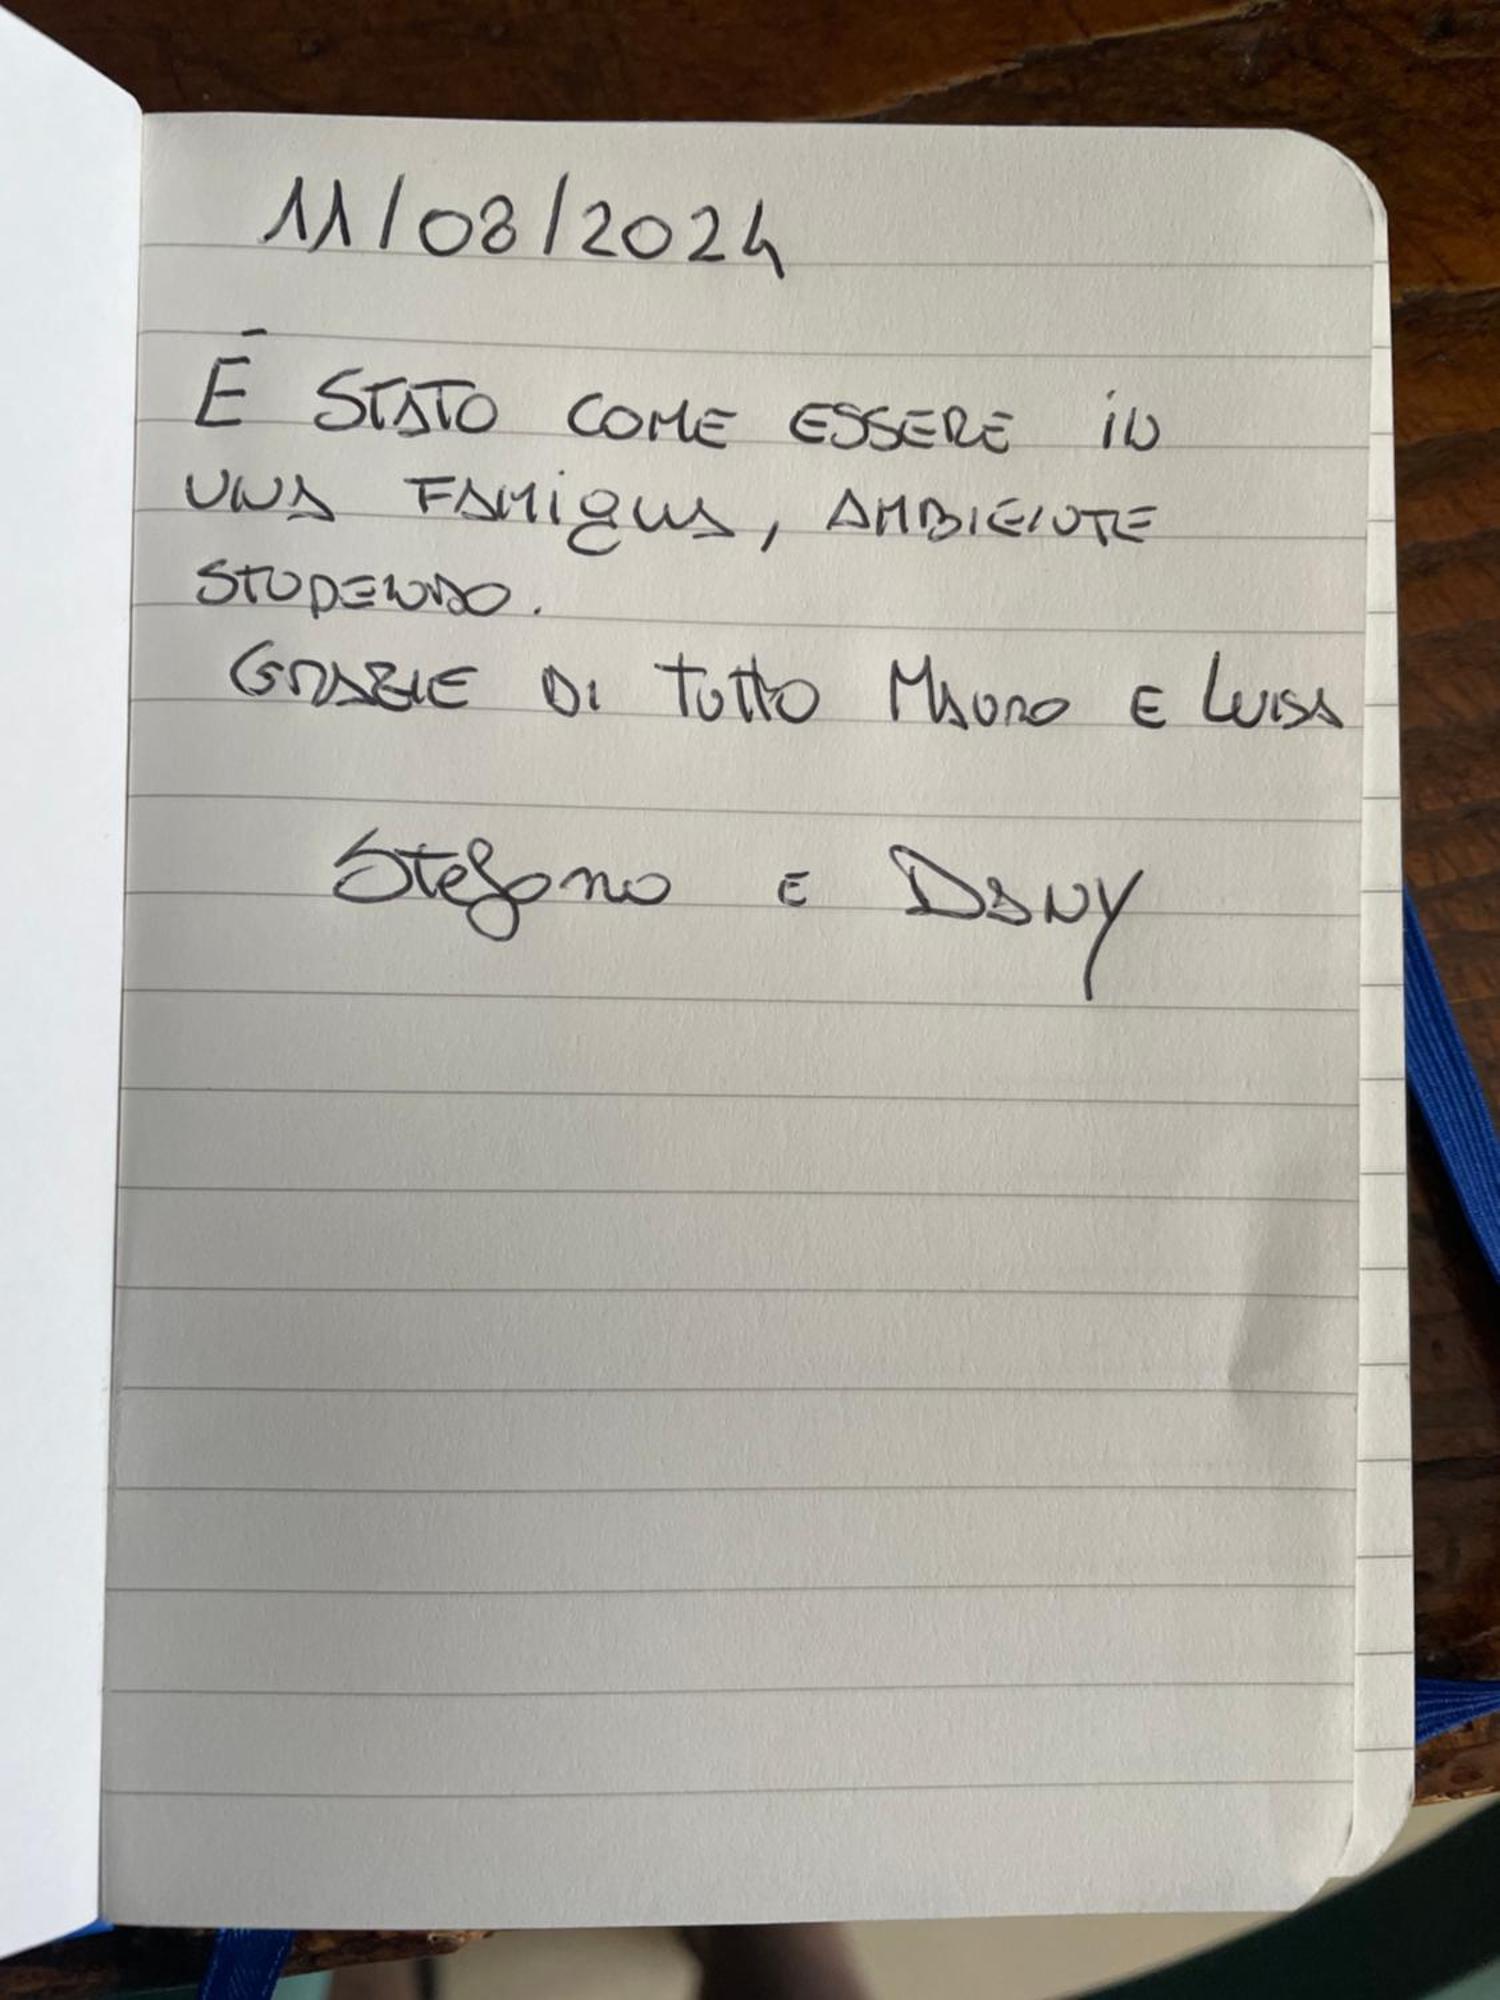 11/08/2024
È STATO COME ESSERE iN
UNA FAMiGLIA, AMBIENTE
STUPENDO.
GRAZIE DI TUTTO MAURO E LUISA
Stefano E DANY